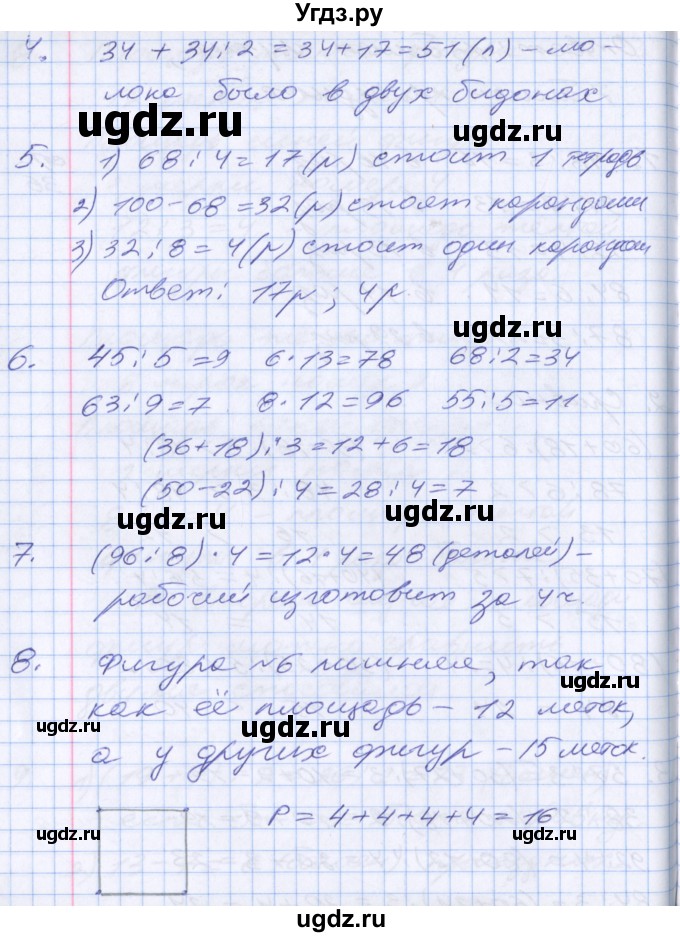 Угдз.ру
4. 34 + 34 : 2 = 34 + 17 = 51 (л) – мо-
лока было в двух бидонах
ugdz.ru ugdz.ru
5. 1) 68 : 4 = 17 (р) стоит 1 тетрадь
2) 100 – 68 = 32 (р) стоят карандаши
3) 32 : 8 = 4 (р) стоит один карандаш
Ответ: 17р ; 4р.
ugdz.ru
6. 45 : 5 = 9 6 · 13 = 78 68 : 2 = 34
63 : 9 = 7 8 · 12 = 96 55 : 5 = 11
(36 + 18) : 3 = 12 + 6 = 18
(50 – 22) : 4 = 28 : 4 = 7
ugdz.ru ugdz.ru
7. (96 : 8) · 4 = 12 · 4 = 48 (деталей) –
рабочий изготовит за 4 ч.
8. Фигура №6 лишняя, так
ugdz.ru
как её площадь – 12 клеток,
ugdz.ru ugdz.ru
а у других фигур – 15 клеток.
P = 4 + 4 + 4 + 4 = 16
ugdz.ru ugdz.ru
ugdz.ru